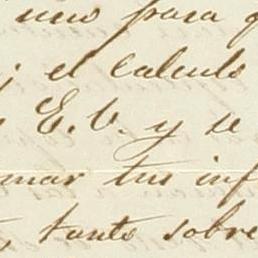 uno para
el calculo
E. V. y se
mar tus inf
, tanto sobre